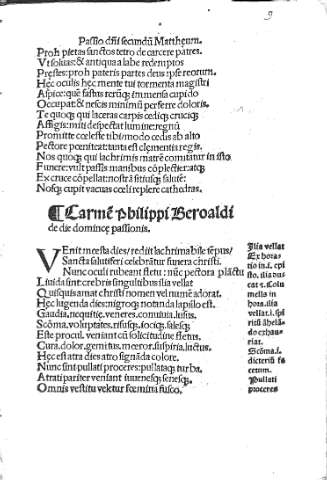 9
Passio dñi secundũ Mattheum.
Proh pietas sanctos tetro de carcere patres.
Vt soluas: & antiqua a labe redemptos
Præstes: proh pateris partes deus ipse reorum.
Hęc oculis hęc mente tui tormenta magistri
Aspice: quę fastus rerũq; immensa cupido
Occupat: & nescis minimũ perferre doloris.
Te quoq; qui laceras carpis cędisq; crucisq;
Affigis: miti despectat lumine: regnũ
Promittit cœleste tibi modo cedis ab alto
Pectore pœniteat: tanta est clementia regis.
Nos quoq; qui lachrimis matrẽ comitatur in isto
Funere: vult passis manibus cõplectier: atq;
Ex cruce cõpellat: nostrã sitiusq; salutẽ:
Nosq; cupit vacuas cœli replere cathedras.
¶ Carmẽ Philippi Beroaldi
de die dominicę passionis.
VEnit mœsta dies/ rediit lachrimabile tẽpus/
Sancta salutiferi celebrãtur funera christi.
Nunc oculi rubeant fletu: nũc pectora plãctu
Liuida sint: crebris singultibus ilia vellat
Quisquis amat christi nomen vel numẽ adorat.
Hęc lugenda dies: nigroq; notanda lapillo est.
Gaudia, nequitię, veneres, conuiuia, lusus,
Scõma, voluptates, risusq;, iocusq;, salesq;
Este procul. veniant cũ solicitudine fletus.
Cura, dolor, gemitus, mœror, suspiria, luctus.
Hęc est atra dies atro signãda colore.
Nunc sint pullati proceres: pullataq; turba.
Atrati pariter veniant iuuenesq; senesq;.
Omnis vestitu vektur fœmina fusco.
Ilia vellat
Ex hora-
tio in.i. epi
sto. ilia duc
cat &. Colu
mella in
hora. ilia
vellat. i. spi
ritũ ãhelã-
do exhau-
riat.
Scõma. i.
dicteriũ fa
cetum.
Pullati
proceres